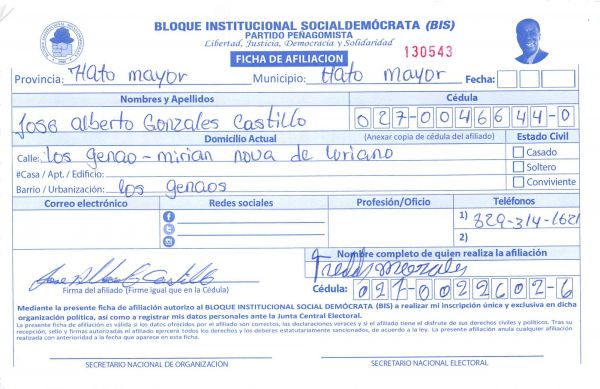 BLOQUE INSTITUCIONAL SOCIALDEMÓCRATA (BIS)
PARTIDO PEÑAGOMISTA
Libertad, Justicia, Democracia y Solidaridad
FICHA DE AFILIACION
130543
Provincia: Hato mayor Municipio: Hato mayor Fecha:
Nombres y Apellidos Cédula
Jose alberto Gonzales Castillo 027-0046644-0
Domicilio Actual (Anexar copia de cédula del afiliado) Estado Civil
Calle: los genao - mirian nova de loriano Casado
#Casa / Apt. / Edificio: Soltero
Barrio / Urbanización: los genaos Conviviente
Correo electrónico Redes sociales Profesión/Oficio Teléfonos
1) 829-314-1621
2)
Nombre completo de quien realiza la afiliación
Freddy morales
Jose Alberto Castillo
Firma del afiliado (Firme igual que en la Cédula) Cédula: 027-0022602-6
Mediante la presente ficha de afiliación autorizo al BLOQUE INSTITUCIONAL SOCIAL DEMÓCRATA (BIS) a realizar mi inscripción única y exclusiva en dicha
organización política, así como a registrar mis datos personales ante la Junta Central Electoral.
La presente ficha de afiliación es válida si los datos ofrecidos por el afiliado son correctos, las declaraciones veraces y si el afiliado tiene el disfrute de sus derechos civiles y políticos. Tras su
recepción, sello y firmas autorizadas el afiliado ejercerá todos los derechos y los deberes estatutariamente sancionados, de acuerdo a la ley. La presente afiliación anula cualquier afiliación
realizada con anterioridad a la fecha que aparece en esta ficha.
SECRETARIO NACIONAL DE ORGANIZACIÓN SECRETARIO NACIONAL ELECTORAL